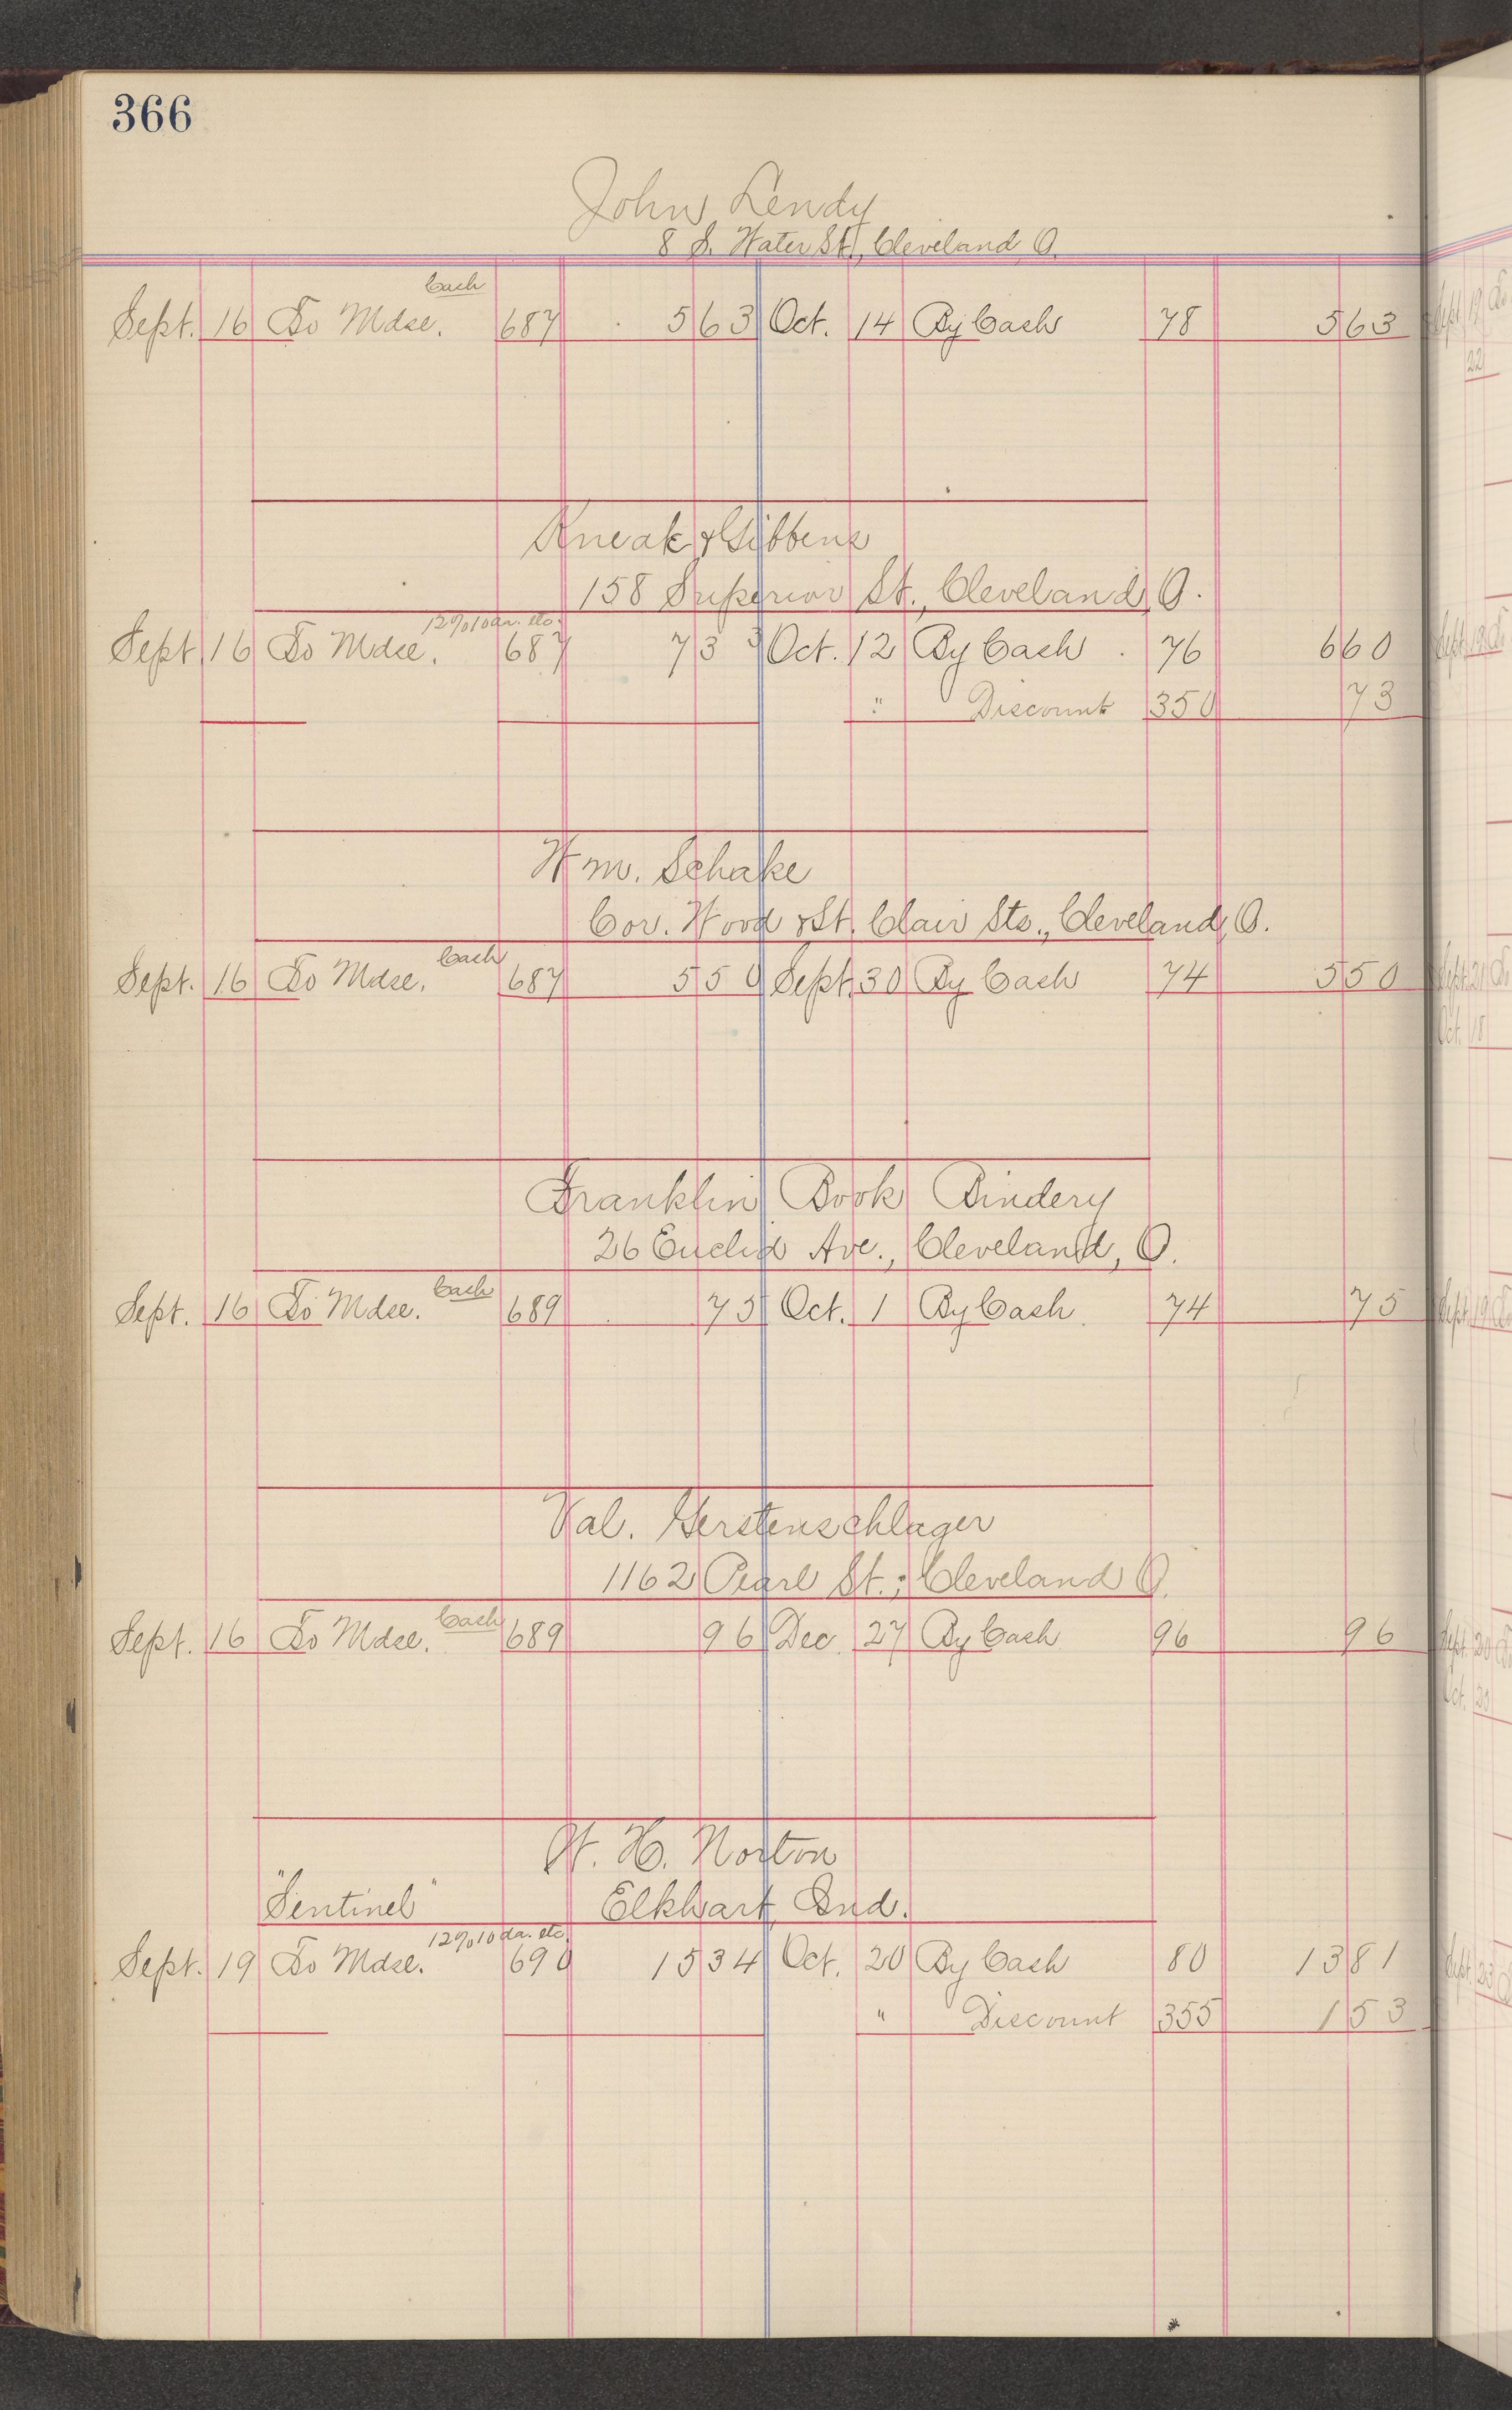 366
John Lendy
8 S. Water St., Cleveland, O.
Cash
Sept. 16 To Mdse. 687 5 63 Oct. 14 By Cash 78 5 63
Kneak & Gibbens
158 Superior St., Cleveland, O.
12% 10 da. etc.
Sept. 16 To Mdse. 687 7 33 Oct. 12 By Cash 76 6 60
" Discount 350 73
Wm. Schake
Cor. Wood & St. Clair Sts., Cleveland, O.
Cash
Sept. 16 To Mdse. 687 5 50 Sept. 30 By Cash 74 5 50
Franklin Book Bindery
26 Euclid Ave., Cleveland, O.
Cash
Sept. 16 To Mdse. 689 75 Oct. 1 By Cash 74 75
Val. Gerstenschlager
1162 Pearl St., Cleveland O.
Cash
Sept. 16 To Mdse. 689 96 Dec. 27 By Cash 96 96
W. H. Norton
"Sentinel" Elkhart, Ind.
12% 10 da. etc.
Sept. 19 To Mdse. 690 15 34 Oct. 20 By Cash 80 13 81
" Discount 355 1 53